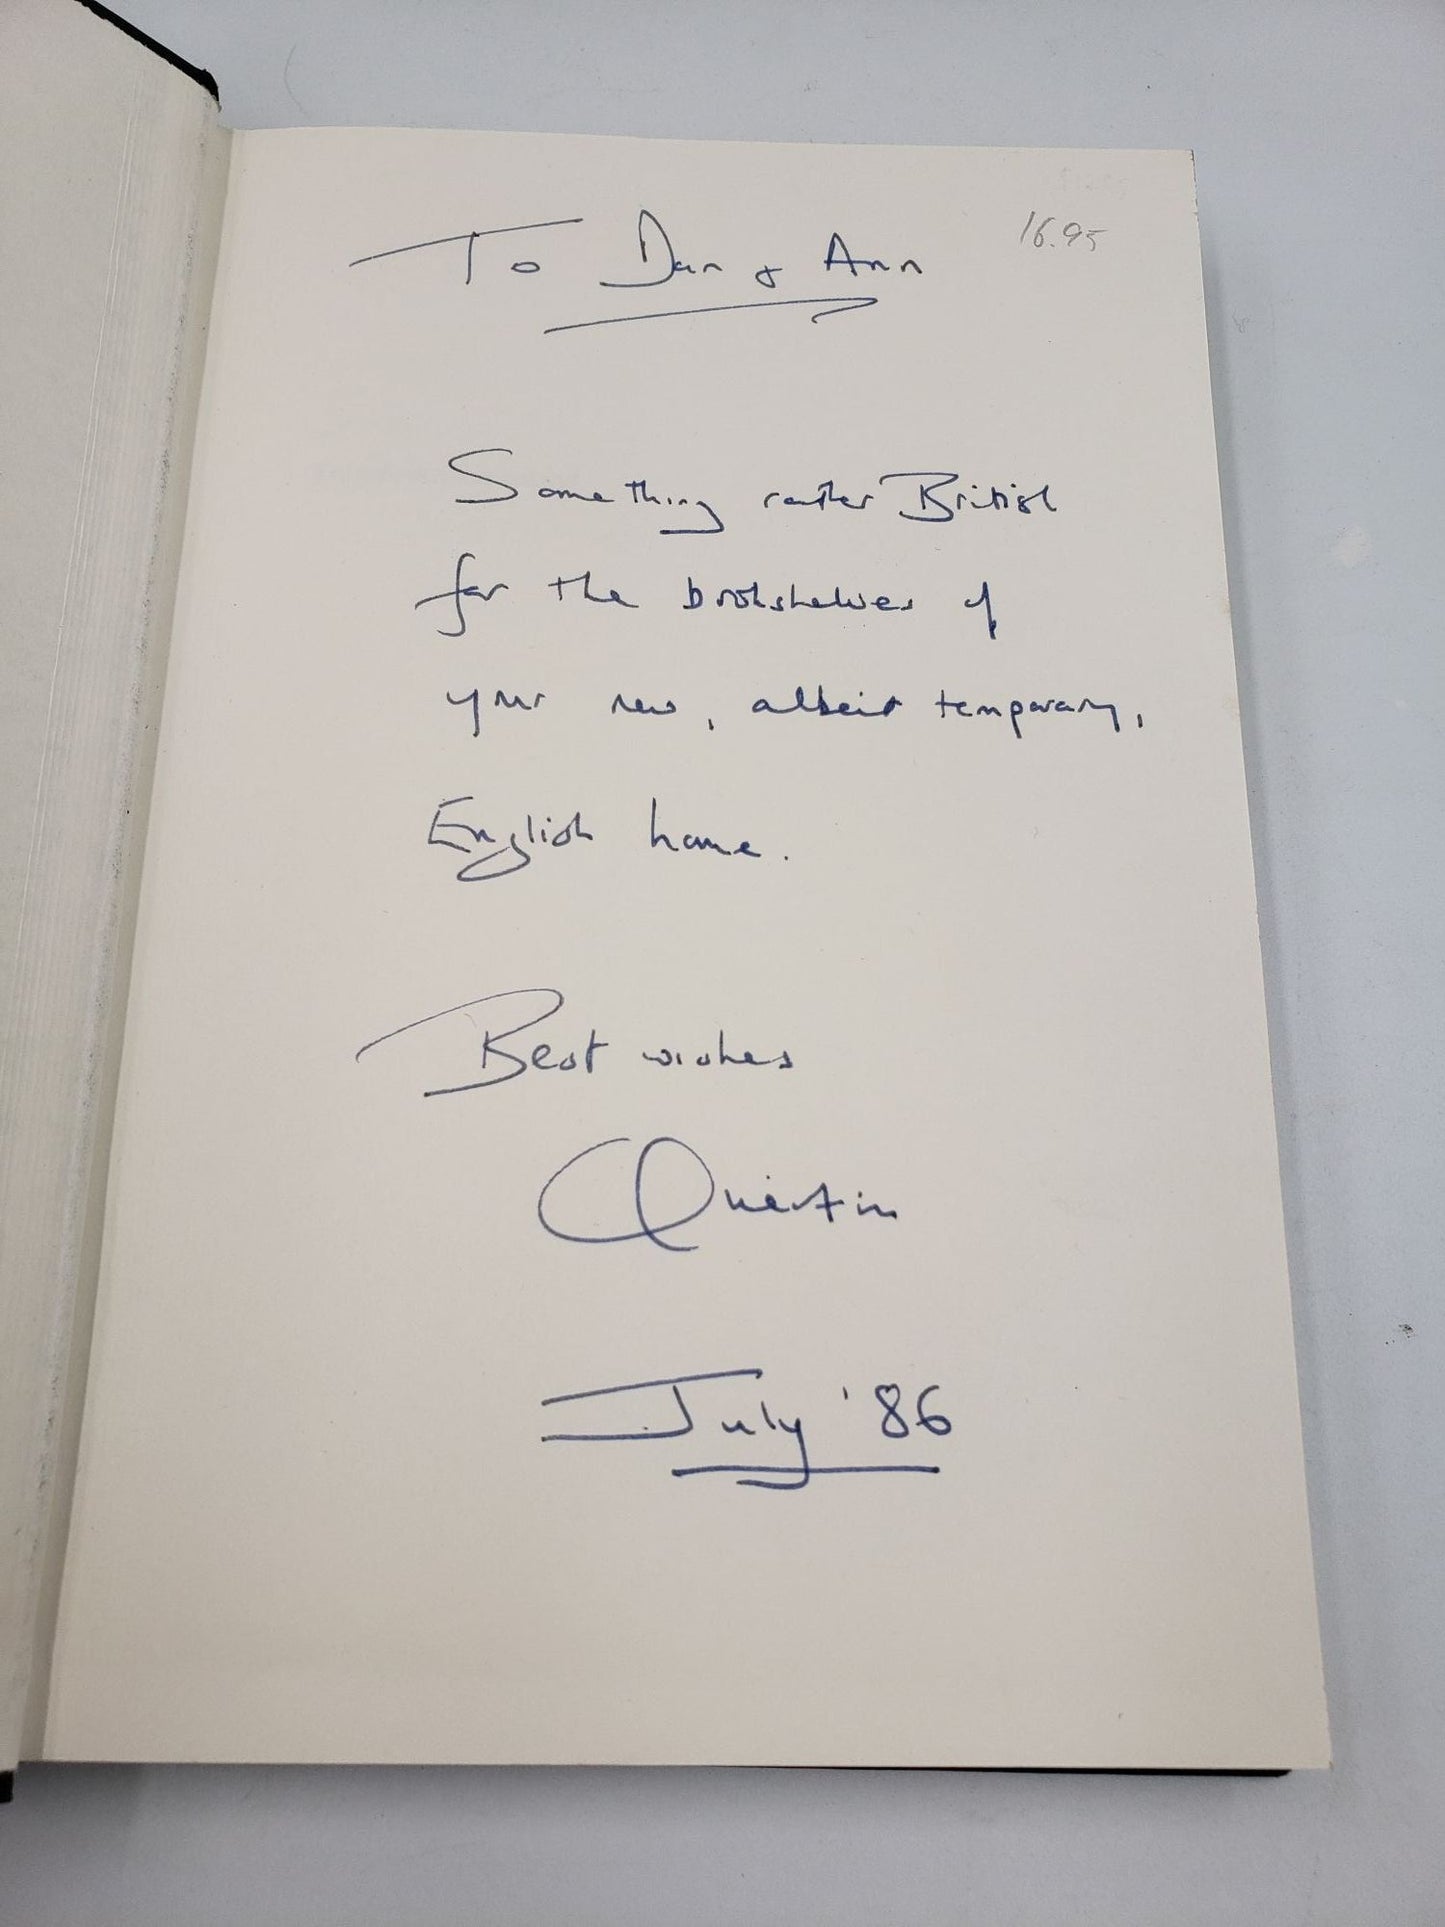 To Dan & Ann
16.95
Something rather British
for the bookshelves of
your new, albeit temporary,
English home.
Best wishes
Quentin
July '86